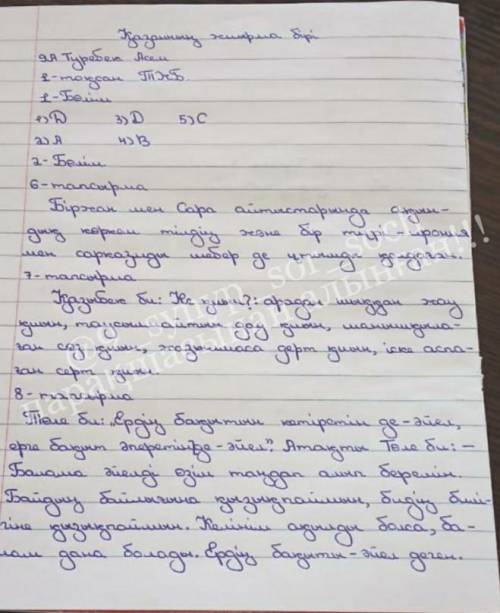 Қазанның жиырма бірі
9А Туребек Асем
1-тоқсан ТЖБ
1-Бөлім
1) D 3) D 5) C
2) A 4) B
2-Бөлім
6-тапсырма
Біржан мен Сара айтыстарында ақын-
дық көркем тілдің және бір түрі - ирония
мен сарказмды шебер де ұтымды қолдоған.
7-тапсырма
Қазыбек би: Не қиын?: арадан шыққан жау
қиын, таусыла айтқан дау қиын, шанышқыла-
ған сөз қиын, жазылмаса дерт қиын, іске аспа-
ған серт қиын.
8-тапсырма
Төле би: „Ердің бақытын келтіретін де-әйел,
ерге бақыт әперетін де-әйел”. Атақты Төле би: –
Балама әйелді өзім таңдап алып беремін.
Байдың байлығына қызықпаймын, бидің билі-
гіне қызықпаймын. Келінім ақылды болса, ба-
лам дана болады. Ердің бақыты-әйел деген.